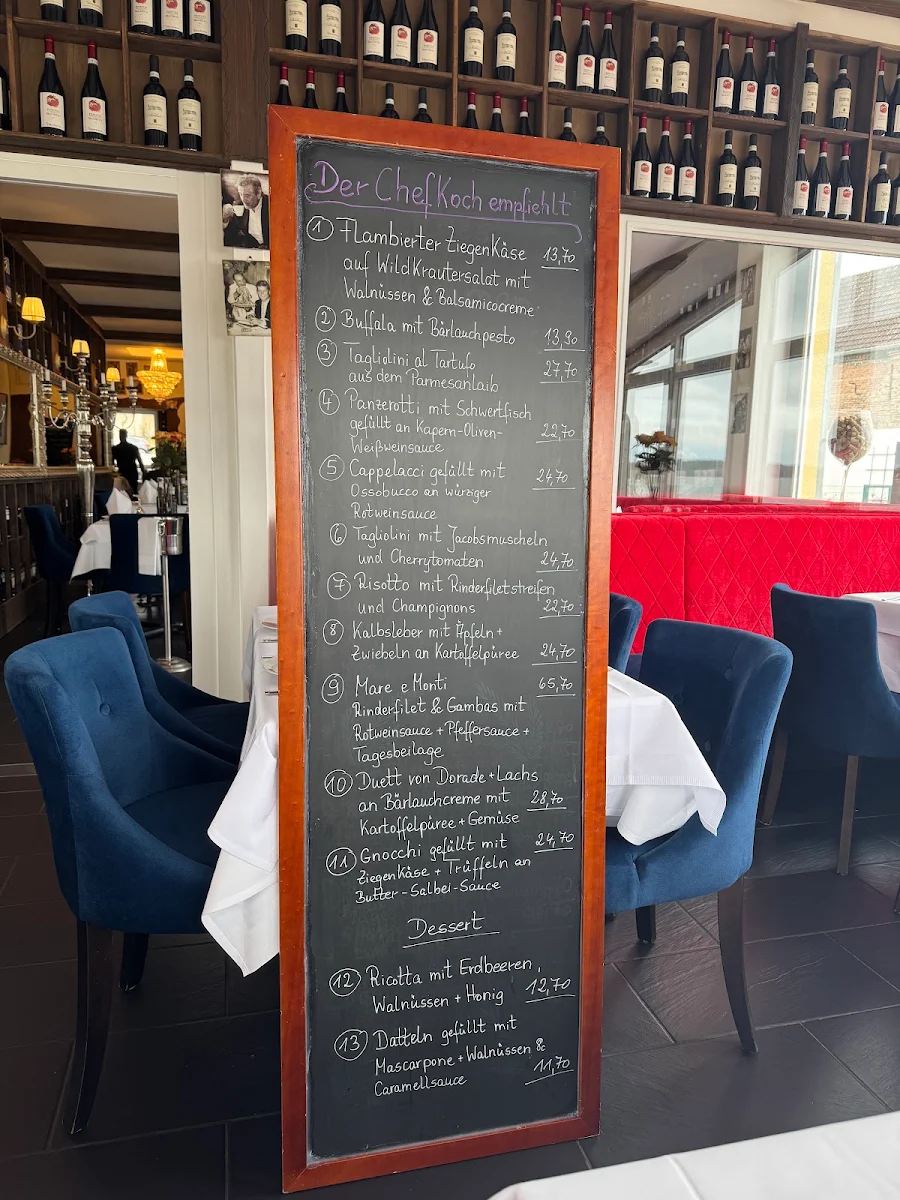 Der Chefkoch empfiehlt
1 Flambierter Ziegenkäse 13,70
auf Wildkräutersalat mit
Walnüssen & Balsamicocreme
2 Buffala mit Bärlauchpesto 13,90
3 Tagliolini al Tartufo 27,70
aus dem Parmesanlaib
4 Panzerotti mit Schwertfisch
gefüllt an Kapern-Oliven- 22,70
Weißweinsauce
5 Cappelacci gefüllt mit 24,70
Ossobucco an würziger
Rotweinsauce
6 Tagliolini mit Jacobsmuscheln
und Cherrytomaten 24,70
7 Risotto mit Rinderfiletstreifen
und Champignons 22,70
8 Kalbsleber mit Äpfeln +
Zwiebeln an Kartoffelpüree 24,70
9 Mare e Monti 65,70
Rinderfilet & Gambas mit
Rotweinsauce + Pfeffersauce +
Tagesbeilage
10 Duett von Dorade + Lachs
an Bärlauchcreme mit 28,70
Kartoffelpüree + Gemüse
11 Gnocchi gefüllt mit 24,70
Ziegenkäse + Trüffeln an
Butter-Salbei-Sauce
Dessert
12 Ricotta mit Erdbeeren,
Walnüssen + Honig 12,70
13 Datteln gefüllt mit
Mascarpone + Walnüssen &
Caramellsauce 11,70